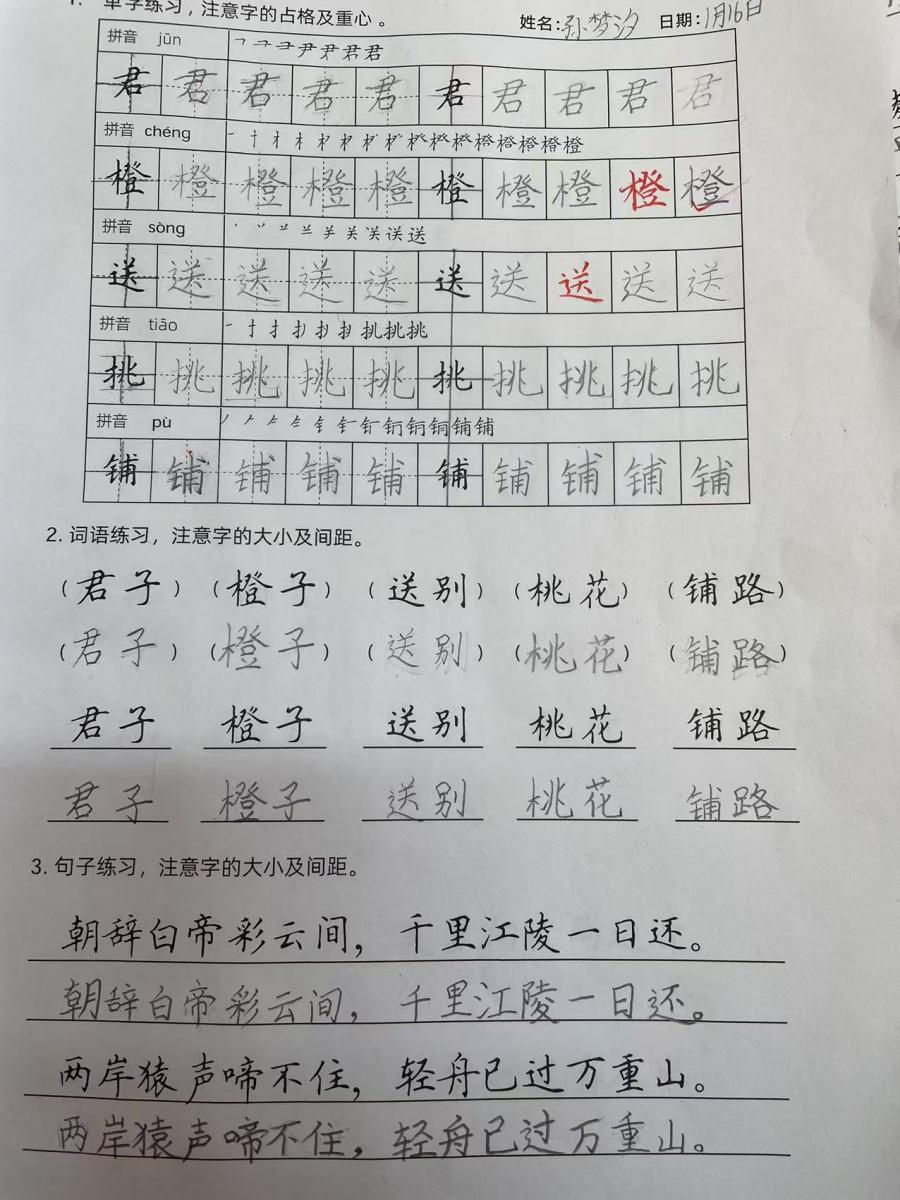 1. 单字练习，注意字的占格及重心。 姓名:孙梦汐 日期:1月16日
拼音 jūn 君君君
君君君君君君君君君君
拼音 chéng 橙橙橙橙橙橙
橙橙橙橙橙橙橙橙橙橙
拼音 sòng 送
送送送送送送送送送送
拼音 tiāo 挑挑挑
挑挑挑挑挑挑挑挑挑挑
拼音 pù 铺铺
铺铺铺铺铺铺铺铺铺铺
2. 词语练习，注意字的大小及间距。
（君子）（橙子）（送别）（桃花）（铺路）
（君子）（橙子）（送别）（桃花）（铺路）
君子 橙子 送别 桃花 铺路
君子 橙子 送别 桃花 铺路
3. 句子练习，注意字的大小及间距。
朝辞白帝彩云间，千里江陵一日还。
朝辞白帝彩云间，千里江陵一日还。
两岸猿声啼不住，轻舟已过万重山。
两岸猿声啼不住，轻舟已过万重山。